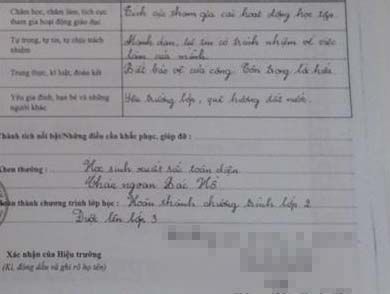 Chăm học, chăm làm, tích cực tham gia hoạt động giáo dục
Tích cực tham gia các hoạt động học tập.
Tự trọng, tự tin, tự chịu trách nhiệm
Mạnh dạn, tự tin có trách nhiệm về việc
làm của mình
Trung thực, kỉ luật, đoàn kết
Biết bảo vệ của công. Tôn trọng lời hứa.
Yêu gia đình, bạn bè và những người khác
Yêu trường lớp, quê hương đất nước.
Thành tích nổi bật/Những điều cần khắc phục, giúp đỡ :
Khen thưởng : Học sinh xuất sắc toàn diện
Cháu ngoan Bác Hồ
Hoàn thành chương trình lớp học : Hoàn thành chương trình lớp 2
Được lên lớp 3
Xác nhận của Hiệu trưởng
(Kí, đóng dấu và ghi rõ họ tên)